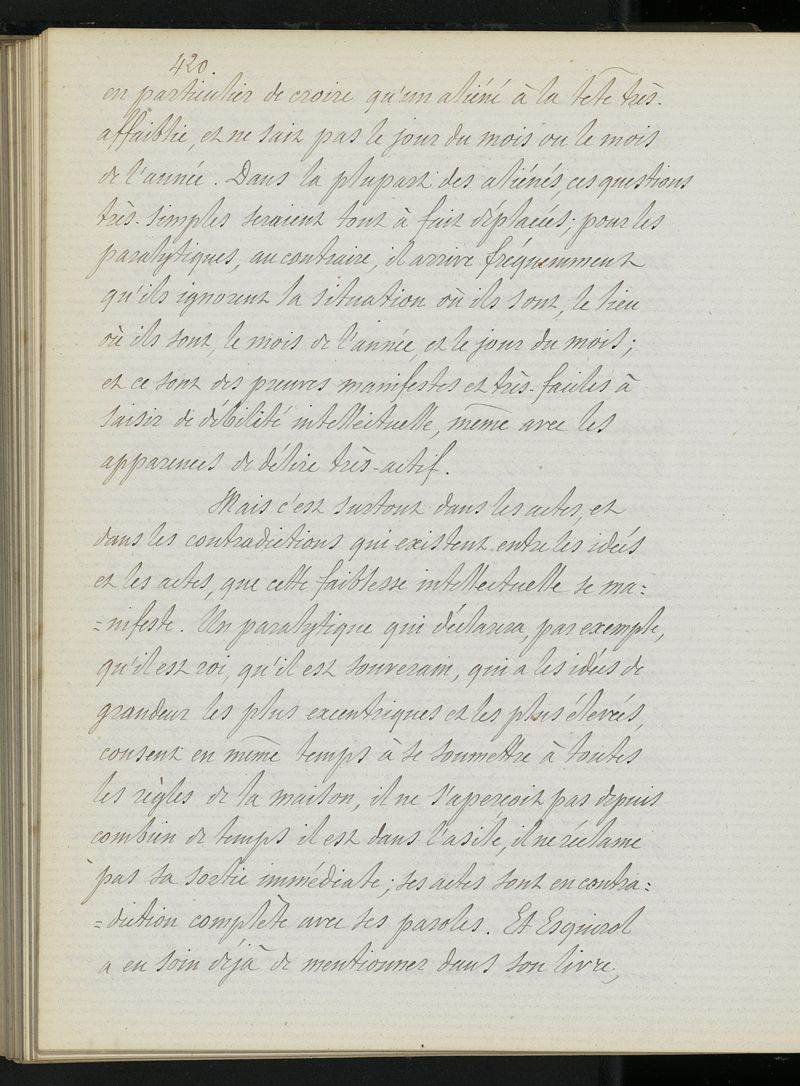 420.
en particulier de croire qu'un aliéné à la tête très-
affaiblie, et ne sait pas le jour du mois ou le mois
de l'année. Dans la plupart des aliénés ces questions
très-simples seraient tout à fait déplacées; pour les
paralytiques, au contraire, il arrive fréquemment
qu'ils ignorent la situation où ils sont, le lieu
où ils sont, le mois de l'année, et le jour du mois;
et ce sont des preuves manifestes et très-faciles à
saisir de débilité intellectuelle, même avec les
apparences de délire très-actif.
Mais c'est surtout dans les actes, et
dans les contradictions qui existent entre les idées
et les actes, que cette faiblesse intellectuelle se ma=
=nifeste. Un paralytique qui déclarera, par exemple,
qu'il est roi, qu'il est souverain, qui a les idées de
grandeur les plus excentriques et les plus élevées,
consent en même temps à se soumettre à toutes
les règles de la maison, il ne s'aperçoit pas depuis
combien de temps il est dans l'asile, il ne réclame
pas sa sortie immédiate; ses actes sont en contra=
=diction complète avec ses paroles. Et Esquirol
a eu soin déjà de mentionner dans son livre,